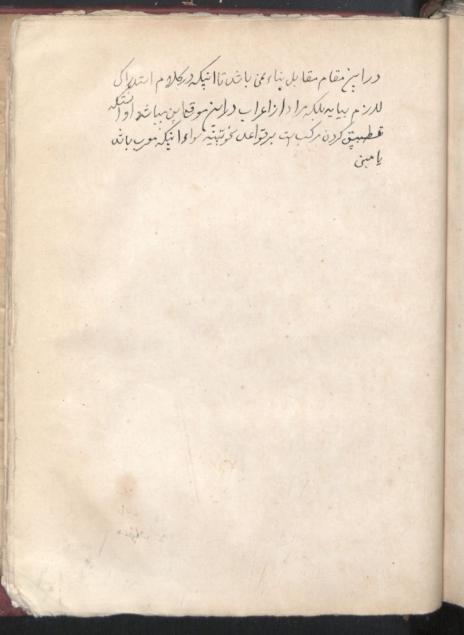 در این مقام مقابل بناء نمی باشد تا اینکه در کلام استدراک
لازم بیاید بلکه مراد از اعراب در این موقع این میباشد او
تطبیق کردن مرکب است بر قواعد نحویه سواء اینکه معرب باشد
یا مبنی